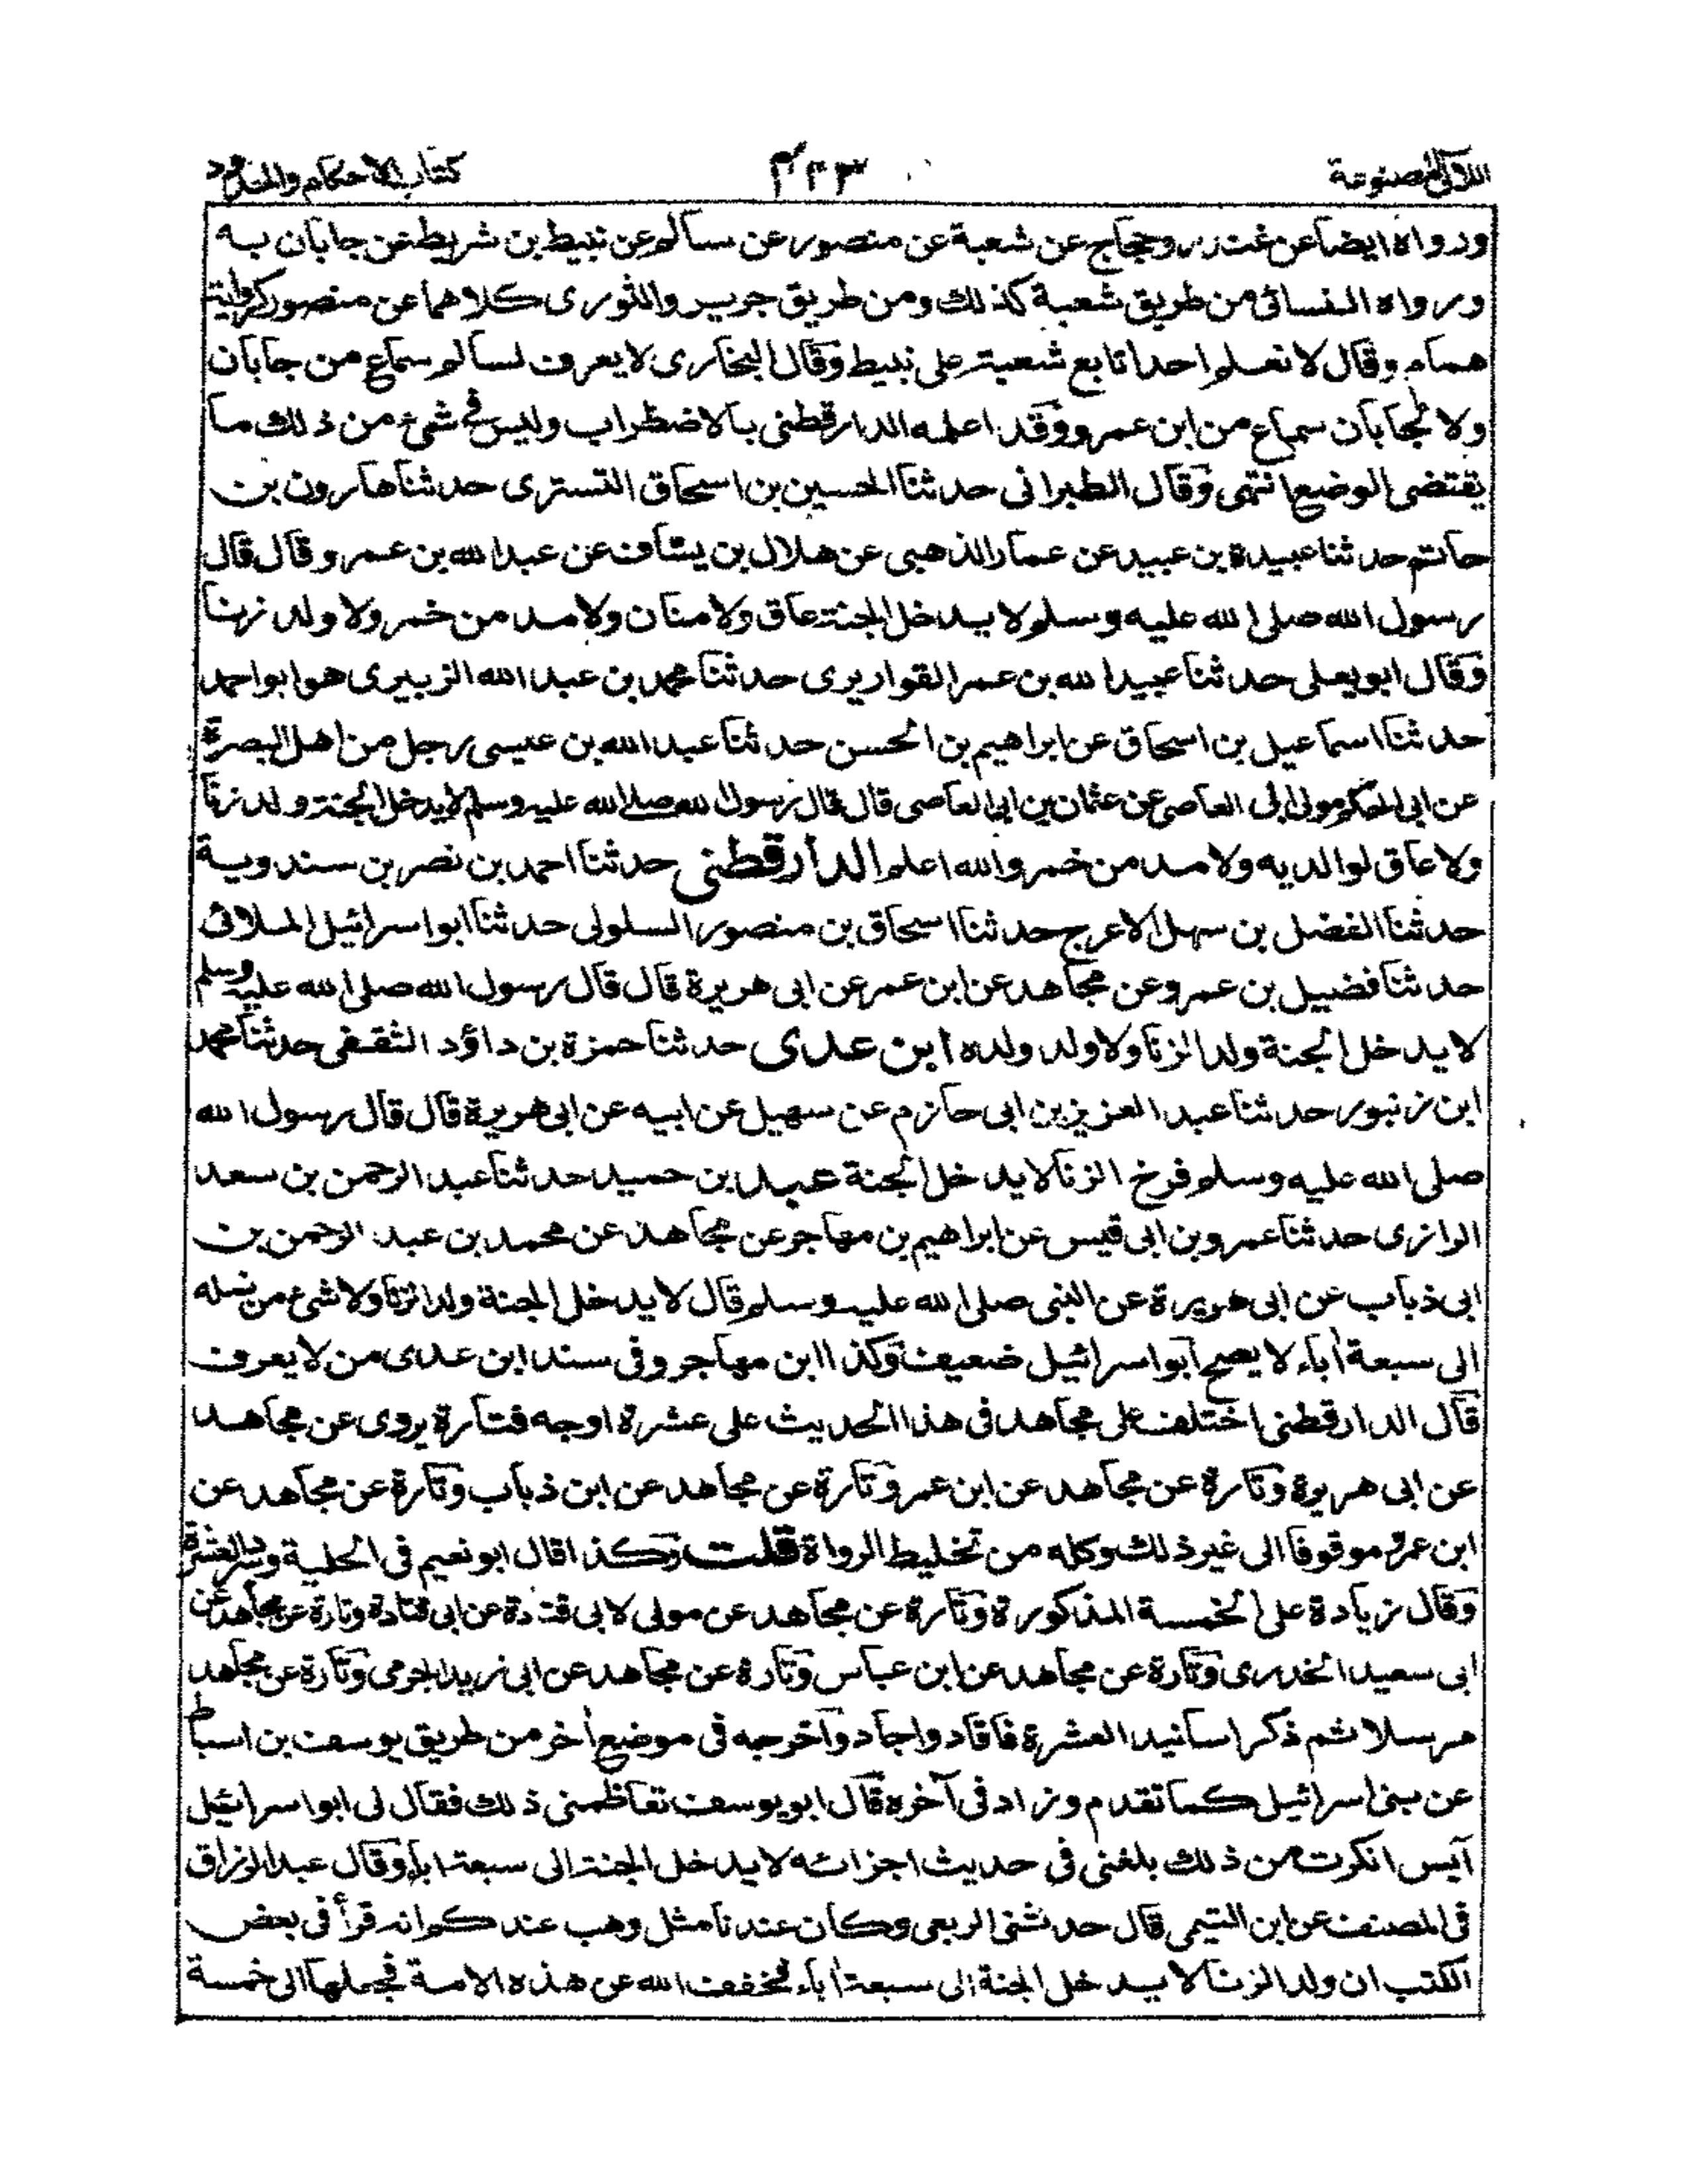 اللآلئ المصنوعة ٤٢٣ كتاب الاحكام والحدود
ورواه ايضا عن غندر وحجاج عن شعبة عن منصور عن سالم عن نبيط بن شريط عن جابان به
ورواه النسائى من طريق شعبة كذلك ومن طريق جرير والثورى كلاهما عن منصور كرواية
همام وقال لا نعلم احدا تابع شعبة على نبيط وقال البخارى لا يعرف لسالم سماع من جابان
ولا لجابان سماع من ابن عمرو وقد اعله الدارقطنى بالاضطراب وليس فى شئ من ذلك ما
يقتضى الوضع انتهى وقال الطبرانى حدثنا الحسين بن اسحاق التسترى حدثنا هارون بن
حاتم حدثنا عبيدة بن عبيد عن عمار الذهبى عن هلال بن يساف عن عبدالله بن عمرو قال قال
رسول الله صلى الله عليه وسلم لا يدخل الجنة عاق ولا منان ولا مدمن خمر ولا ولد زنا
وقال ابو يعلى حدثنا عبيدالله بن عمر القواريرى حدثنا محمد بن عبد الله الزبيرى هو ابواحمد
حدثنا اسماعيل بن اسحاق عن ابراهيم بن الحسن حدثنا عبدالله بن عيسى رجل من اهل البصرة
عن ابى الحكم مولى ابى العاصى عن عثمان بن ابى العاصى قال قال رسول الله صلى الله عليه وسلم لا يدخل الجنة ولد زنا
ولا عاق لوالديه ولا مدمن خمر والله اعلم الدارقطنى حدثنا احمد بن نصر بن سندوية
حدثنا الفضل بن سهل الاعرج حدثنا اسحاق بن منصور السلولى حدثنا ابو اسرائيل الملائى
حدثنا فضيل بن عمرو عن مجاهد عن ابن عمر عن ابى هريرة قال قال رسول الله صلى الله عليه وسلم
لا يدخل الجنة ولد الزنا ولا ولد ولده ابن عدى حدثنا حمزة بن داؤد الثقفى حدثنا محمد
ابن زنبور حدثنا عبدالعزيز بن ابى حازم عن سهيل عن ابيه عن ابى هريرة قال قال رسول الله
صلى الله عليه وسلم فرخ الزنا لا يدخل الجنة عبد بن حميد حدثنا عبد الرحمن بن سعد
الرازى حدثنا عمرو بن ابى قيس عن ابراهيم بن مهاجر عن مجاهد عن محمد بن عبد الرحمن بن
ابى ذباب عن ابى هريرة عن النبى صلى الله عليه وسلم قال لا يدخل الجنة ولد الزنا ولا شئ من نسله
الى سبعة أباء لا يصح ابواسرائيل ضعيف وكذا ابن مهاجر وفى سند ابن عدى من لا يعرف
قال الدارقطنى اختلف على مجاهد فى هذا الحديث على عشرة اوجه فتارة يروى عن مجاهد
عن ابى هريرة وتارة عن مجاهد عن ابن عمر وتارة عن مجاهد عن ابن ذباب وتارة عن مجاهد عن
ابن عمرو موقوفا الى غير ذلك وكله من تخليط الرواة قلت وكذا قال ابو نعيم فى الحلية وسرد العشرة
وقال زيادة على الخمسة المذكورة وتارة عن مجاهد عن مولى لابى قتادة عن ابى قتادة وتارة عن مجاهد عن
ابى سعيد الخدرى وتارة عن مجاهد عن ابن عباس وتارة عن مجاهد عن ابى زيد الجرمى وتارة عن مجاهد
مرسلا ثم ذكر اسانيد العشرة فافاد واجاد وآخرجه فى موضع أخر من طريق يوسف بن اسباط
عن بنى اسرائيل كما تقدم وزاد فى آخره قال ابو يوسف تعاظمنى ذلك فقال لى ابو اسرائيل
آيس انكرت من ذلك بلغنى فى حديث اجزائه لا يدخل الجنة الى سبعة اباء وقال عبدالرزاق
فى المصنف عن ابن التيمى قال حدثنى الربعى وكان عندنا مثل وهب عندكم انه قرأ فى بعض
الكتب ان ولد الزنا لا يدخل الجنة الى سبعة أباء فخفف الله عن هذه الامة فجعلها الى خمسة